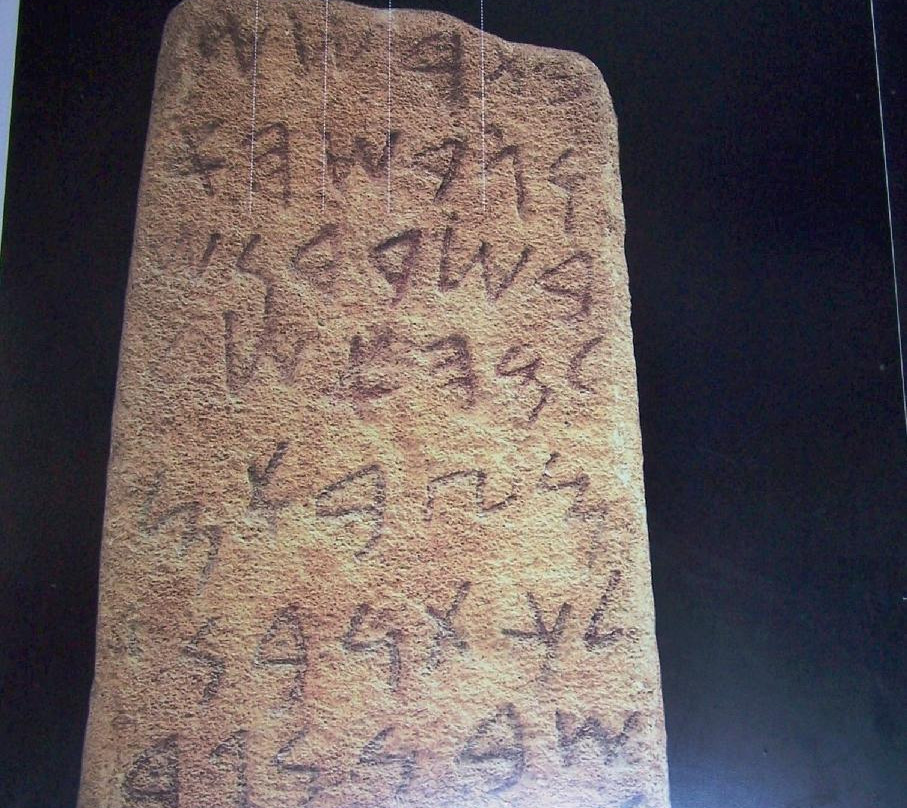 𐤁𐤕𐤓𐤔𐤔
𐤅𐤂𐤓𐤔𐤄𐤀
𐤁𐤔𐤓𐤃𐤍𐤔
𐤋𐤌𐤄𐤀𐤔𐤋
𐤌𐤑𐤁𐤀𐤌
𐤋𐤊𐤕𐤍𐤁𐤍
𐤔𐤁𐤍𐤍𐤂𐤓